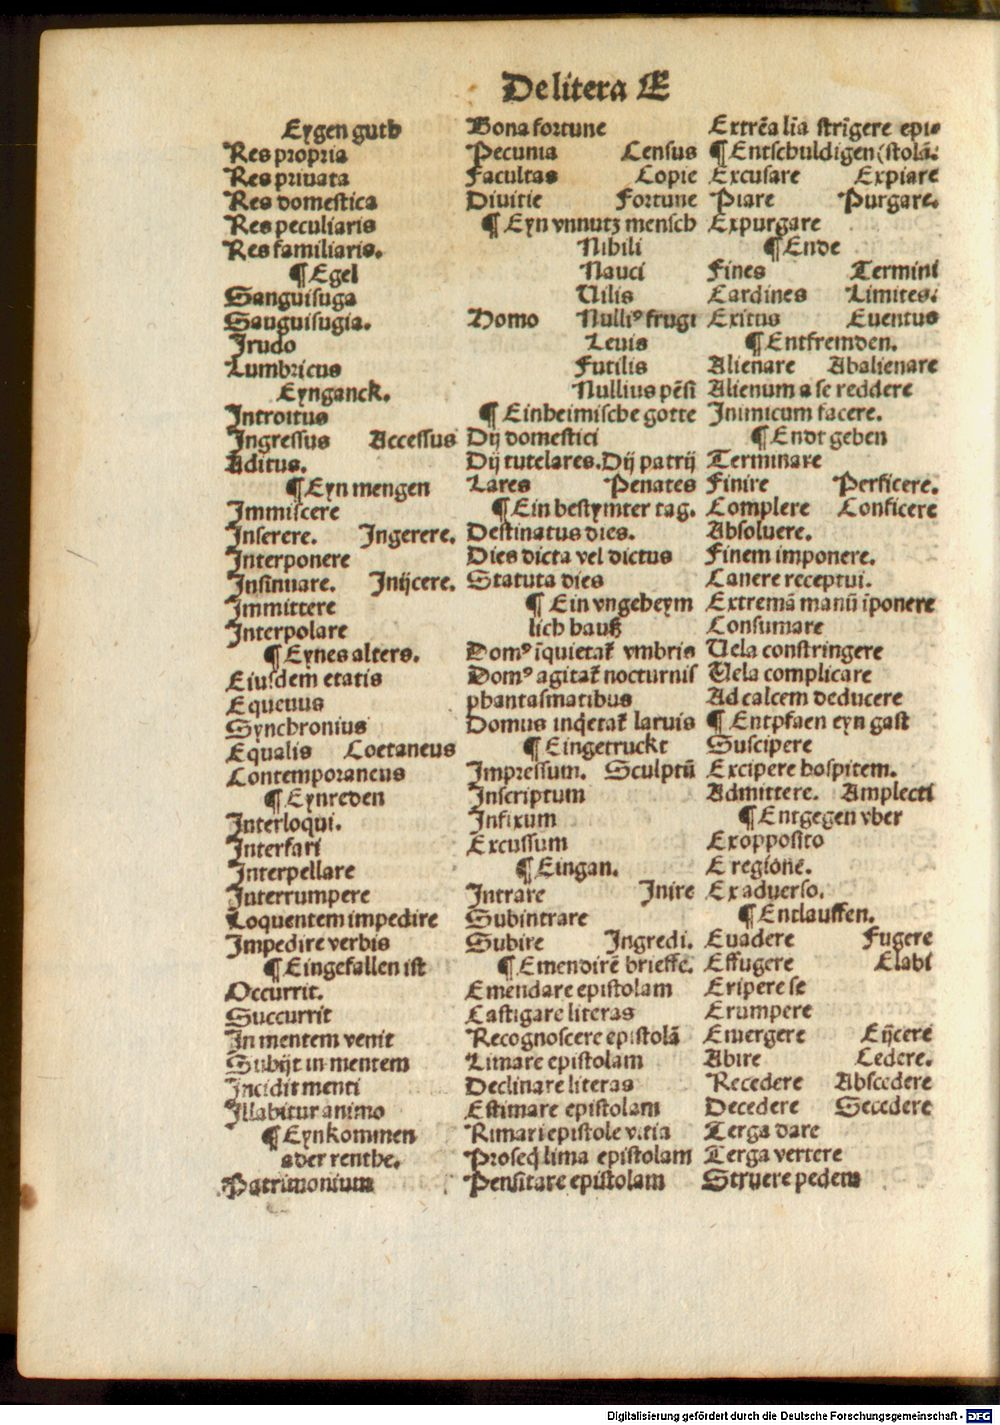 De litera E
Eygen guth
Res propria
Res priuata
Res domestica
Res peculiaris
Res familiaris.
¶ Egel
Sanguisuga
Sanguisugia.
Irudo
Lumbricus
Eynganck.
Introitus
Ingressus Accessus
Aditus.
¶ Eyn mengen
Immiscere
Inserere. Ingerere.
Interponere
Insinuare. Inijcere.
Immittere
Interpolare
¶ Eynes alters.
Eiusdem etatis
Equeuus
Synchronius
Equalis Coetaneus
Contemporaneus
¶ Eynreden
Interloqui.
Interfari
Interpellare
Interrumpere
Loquentem impedire
Impedire verbis
¶ Eingefallen ist
Occurrit.
Succurrit
In mentem venit
Subijt in mentem
Incidit menti
Illabitur animo
¶ Eynkommen
ader renthe.
Patrimonium
Bona fortune
Pecunia Census
Facultas Copie
Diuitie Fortune
¶ Eyn vnnutz mensch
Nibili
Nauci
Uilis
Homo Nulliꝰ frugi
Leuis
Futilis
Nullius pẽsi
¶ Einheimische gotte
Dij domestici
Dij tutelares. Dij patrij
Lares Penates
¶ Ein bestymter tag.
Destinatus dies.
Dies dicta vel dictus
Statuta dies
¶ Ein vngeheym
lich hauß
Domꝰ īquietat᷑ vmbris
Domꝰ agitat᷑ nocturnis
phantasmatibus
Domus inq̇etat᷑ laruis
¶ Eingetruckt
Impressum. Sculptū
Inscriptum
Infixum
Excussum
¶ Eingan.
Intrare Inire
Subintrare
Subire Ingredi.
¶ Emendirē brieffe.
Emendare epistolam
Castigare literas
Recognoscere epistolā
Limare epistolam
Declinare literas
Estimare epistolam
Rimari epistole vitia
Proseq̇ lima epistolam
Pensitare epistolam
Extrēa līa strīgere epi-
¶ Entschuldigen (stolā.
Excusare Expiare
Piare Purgare.
Expurgare
¶ Ende
Fines Termini
Cardines Limites.
Exitus Euentus
¶ Entfremden.
Alienare Abalienare
Alienum a se reddere
Inimicum facere.
¶ Endt geben
Terminare
Finire Perficere.
Complere Conficere
Absoluere.
Finem imponere.
Canere receptui.
Extremā manū īponere
Consumare
Uela constringere
Uela complicare
Ad calcem deducere
¶ Entpfaen eyn gast
Suscipere
Excipere hospitem.
Admittere. Amplecti
¶ Entgegen vber
Ex opposito
E regione.
Ex aduerso.
¶ Entlauffen.
Euadere Fugere
Effugere Elabi
Eripere se
Erumpere
Emergere Eijcere
Abire Cedere.
Recedere Abscedere
Decedere Secedere
Terga dare
Terga vertere
Struere pedem
Digitalisierung gefördert durch die Deutsche Forschungsgemeinschaft - DFG